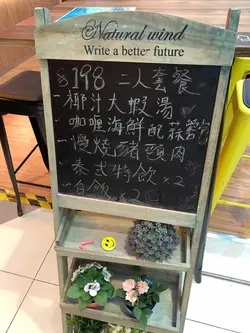 Natural wind
Write a better future
$198 二人套餐
- 椰汁大蝦湯
- 咖喱海鮮配蒜蓉包
- 慢燒豬頸肉
- 泰式特飲 x 2
- 白飯 x 2